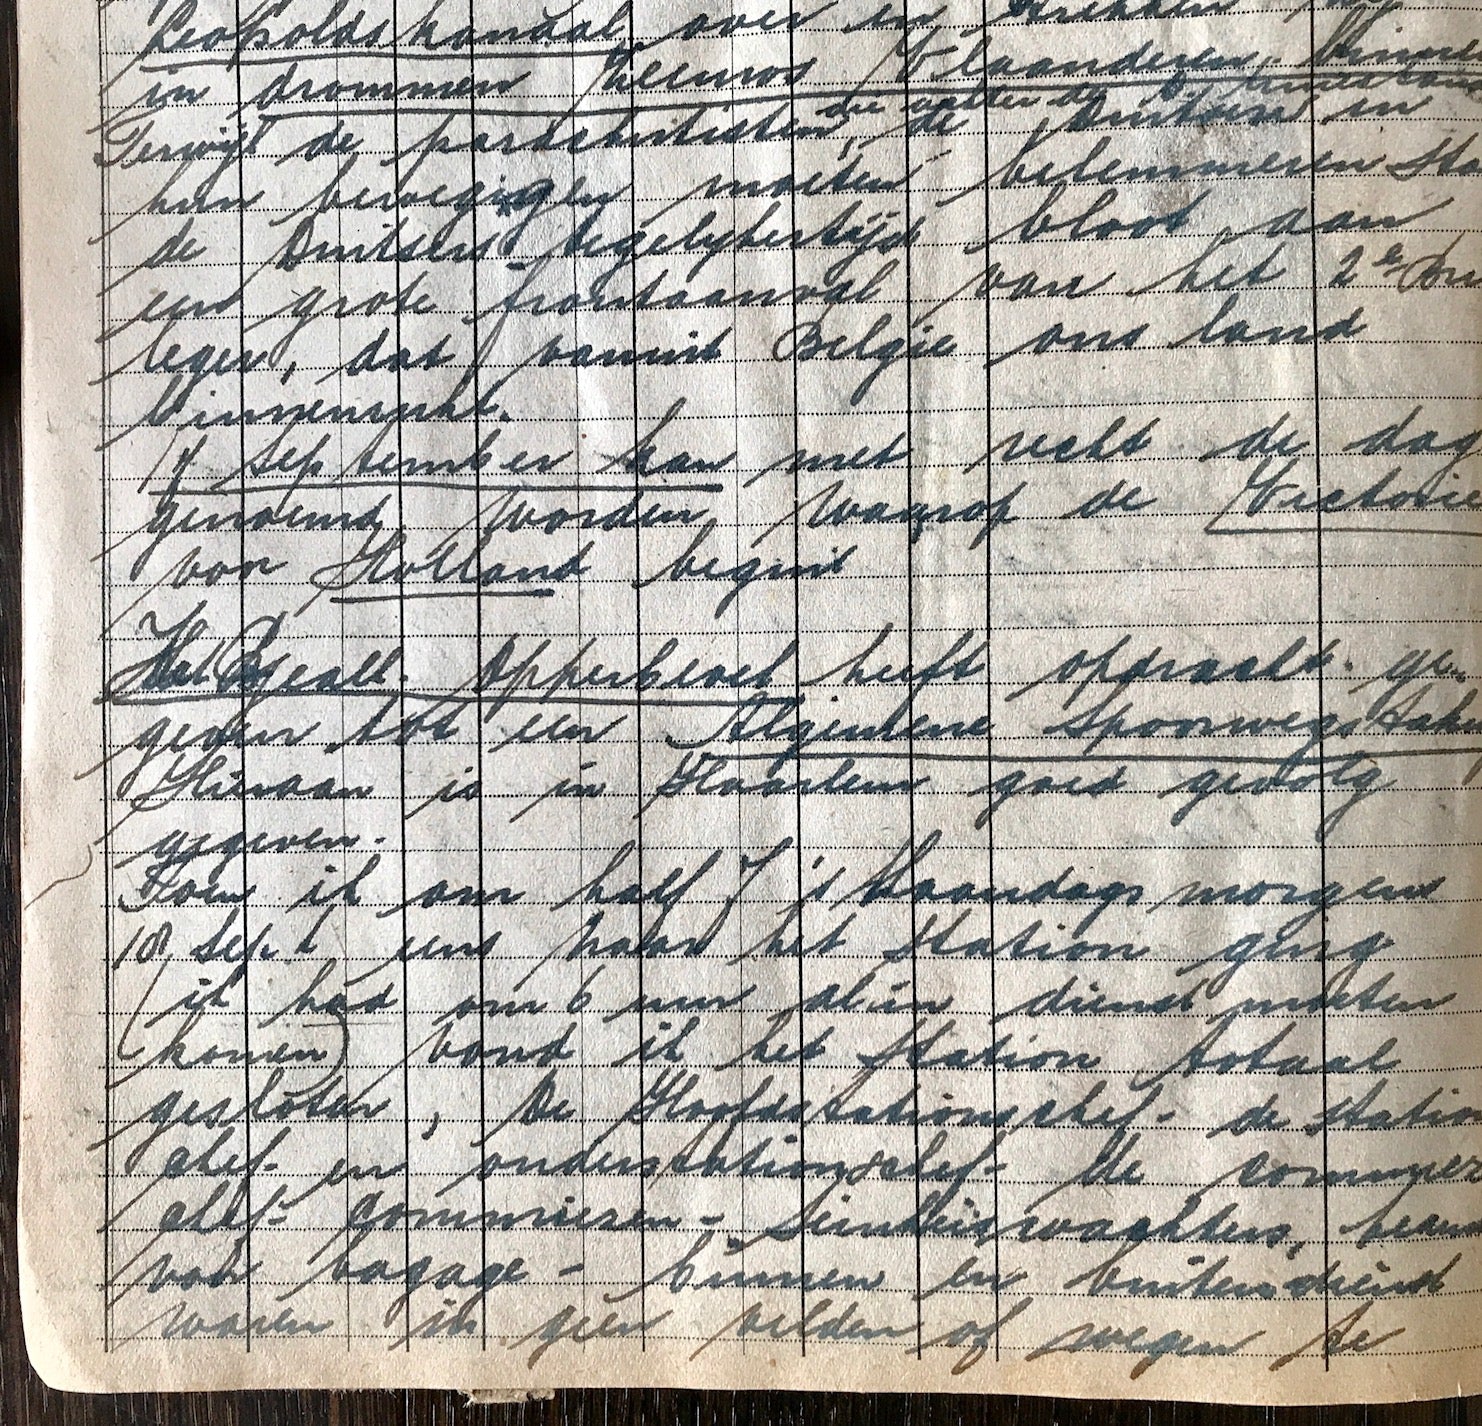 Leopoldskanaal over en trekken
in drommen Zeeuws Vlaanderen binnen
Terwijl de parachutisten, de Duitsers in
hun bewegigen moeten belemmeren sta
de Duitsers tegelykertijd bloot aan
een grote frontaanval van het 2e Bri
leger, dat vanuit Belgie ons land
binnenrukt.
17 september kan met recht de dag
genoemd worden waarop de Victorie
voor Holland begint
Het Geall. Opperbevel heeft opdracht ge-
geven tot een Algemene Spoorwegstak
Hieraan is in Haarlem goed gevolg
gegeven.
Toen ik om half 7 's Maandags morgens
18 Sept eens naar het station ging
(ik had om 6 uur al in dienst moeten
komen) vond ik het station totaal
gesloten, De Hoofdstationschef- de station
chef- en onderstationschef- de commiez
chef- Commiezen- Seinhuiswachters, beam
voor bagage - binnen en buitendienst
waren in geen velden of wegen te